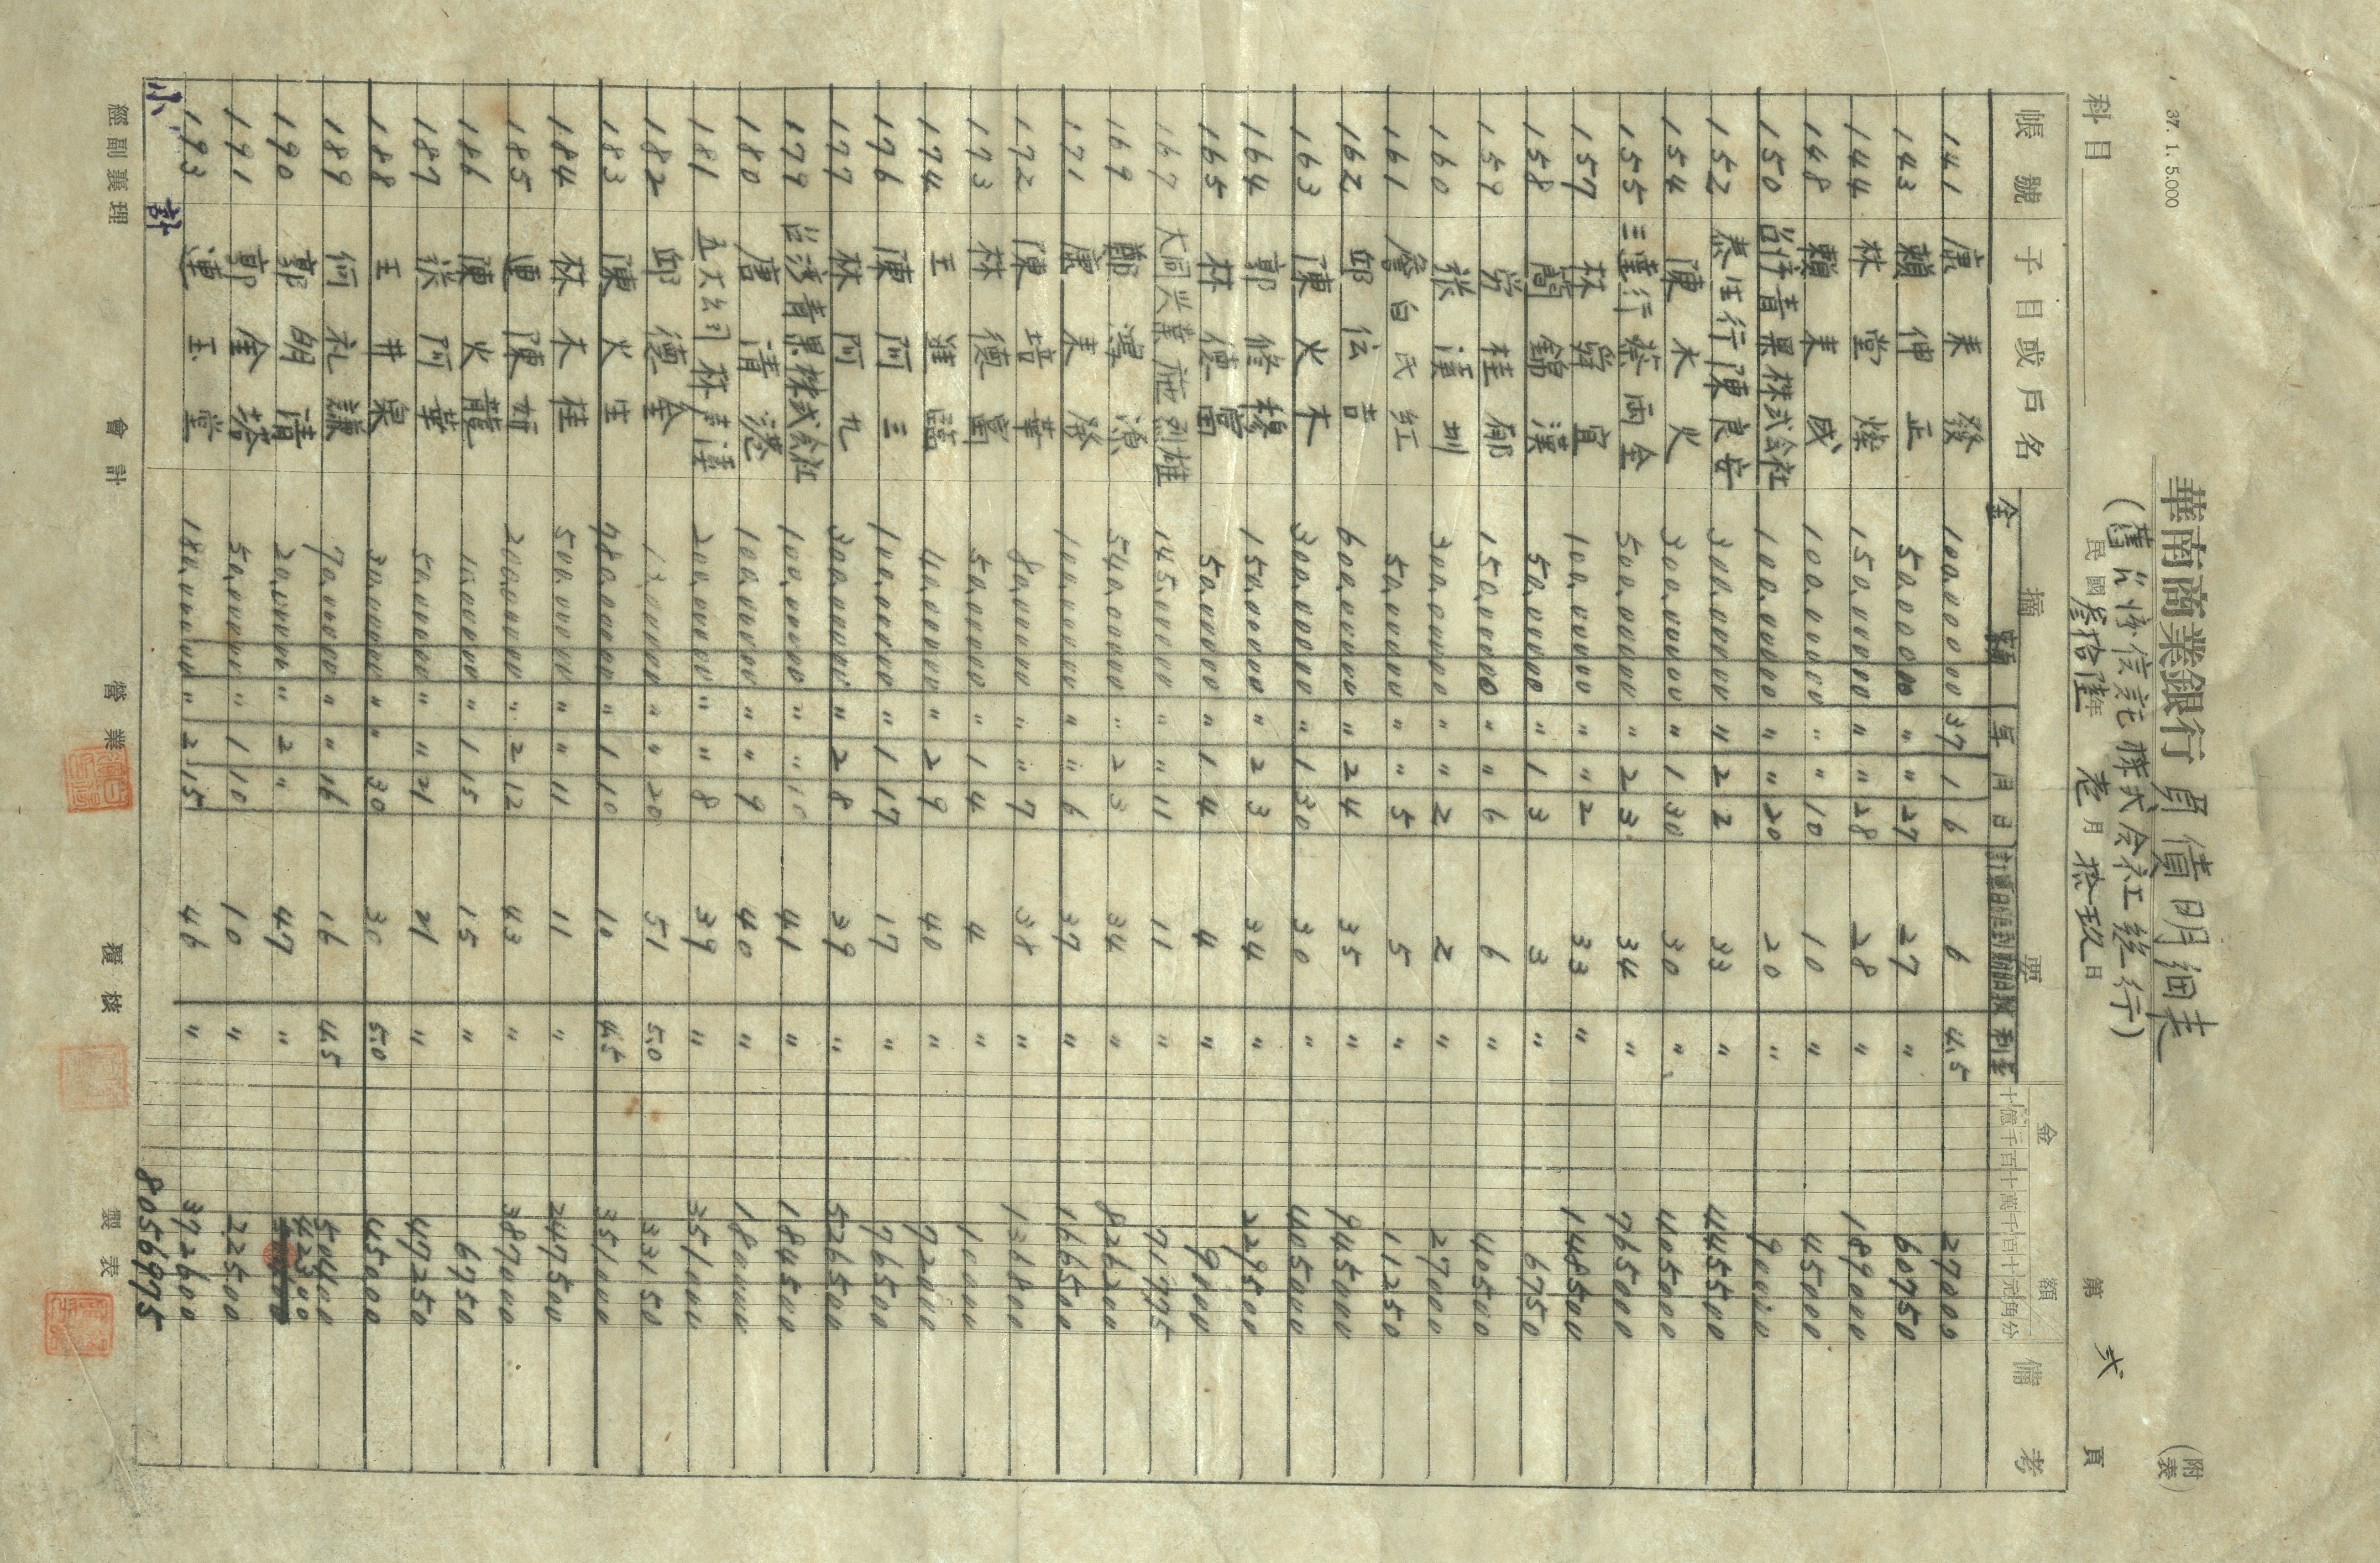 37. 1. 5.000
華南商業銀行 負債明細表
(附表)
(舊台灣信託株式会社總行)
科目
民國叁拾陸年 老月拾玖日
第 弍 頁
帳號 子目或戶名 摘要 金額 備考
金額 年 月 日 利率 十億千百十萬千百十元角分
141 康来發 100,000 00 37 1 6 6 4.5 27000
143 賴伸正 50,000 00 〃 〃 27 27 〃 60750
144 林堂燦 150,000 00 〃 〃 28 28 〃 189000
148 賴来成 100,000 00 〃 〃 10 10 〃 45000
150 台湾青果株式会社 100,000 00 〃 〃 20 20 〃 90000
152 泰生行陳良安 300,000 00 〃 2 2 33 〃 445500
154 陳水火 300,000 00 〃 1 30 30 〃 405000
155 三蓬行蔡両全 500,000 00 〃 2 3 34 〃 765000
157 林宣 100,000 00 〃 〃 2 33 〃 148500
158 簡錦漢 50,000 00 〃 1 3 3 〃 6750
159 桂郁 150,000 00 〃 〃 6 6 〃 40500
160 張漢圳 300,000 00 〃 〃 2 2 〃 27000
161 詹白氏紅 50,000 00 〃 〃 5 5 〃 11250
162 邱伝吉 600,000 00 〃 2 4 35 〃 945000
163 陳火木 300,000 00 〃 1 30 30 〃 405000
164 郭修穆 150,000 00 〃 2 3 34 〃 229500
165 林德富 50,000 00 〃 1 4 4 〃 9000
167 大同兴業施烈雄 145,000 00 〃 〃 11 11 〃 71775
169 鄭深源 540,000 00 〃 2 3 34 〃 826200
171 康来發 100,000 00 〃 〃 6 37 〃 166500
172 陳培華 80,000 00 〃 〃 7 38 〃 136800
173 林德富 50,000 00 〃 1 4 4 〃 10000
174 王進臨 40,000 00 〃 2 9 40 〃 72000
176 陳阿三 100,000 00 〃 1 17 17 〃 76500
177 林阿九 300,000 00 〃 2 8 39 〃 526500
179 台湾青果株式会社 100,000 00 〃 〃 10 41 〃 184500
180 唐清港 100,000 00 〃 〃 9 40 〃 180000
181 五大公司林清漢 200,000 00 〃 〃 8 39 〃 351000
182 邱德金 13,000 00 〃 〃 20 51 5.0 33150
183 陳火生 780,000 00 〃 1 10 10 4.5 351000
184 林木桂 500,000 00 〃 〃 11 11 〃 247500
185 連陳 200,000 00 〃 2 12 43 〃 387000
186 陳火龍 10,000 00 〃 1 15 15 〃 6750
187 張阿華 50,000 00 〃 〃 21 21 〃 47250
188 王井泉 30,000 00 〃 〃 30 30 5.0 45000
189 何礼謙 70,000 00 〃 〃 16 16 4.5 50400
190 郭明清 20,000 00 〃 2 〃 47 〃 42300
191 郭金塔 50,000 00 〃 1 10 10 〃 22500
193 連玉堂 180,000 00 〃 2 15 46 〃 372600
小計 8056975
經副襄理 會計 營業 覆核 製表